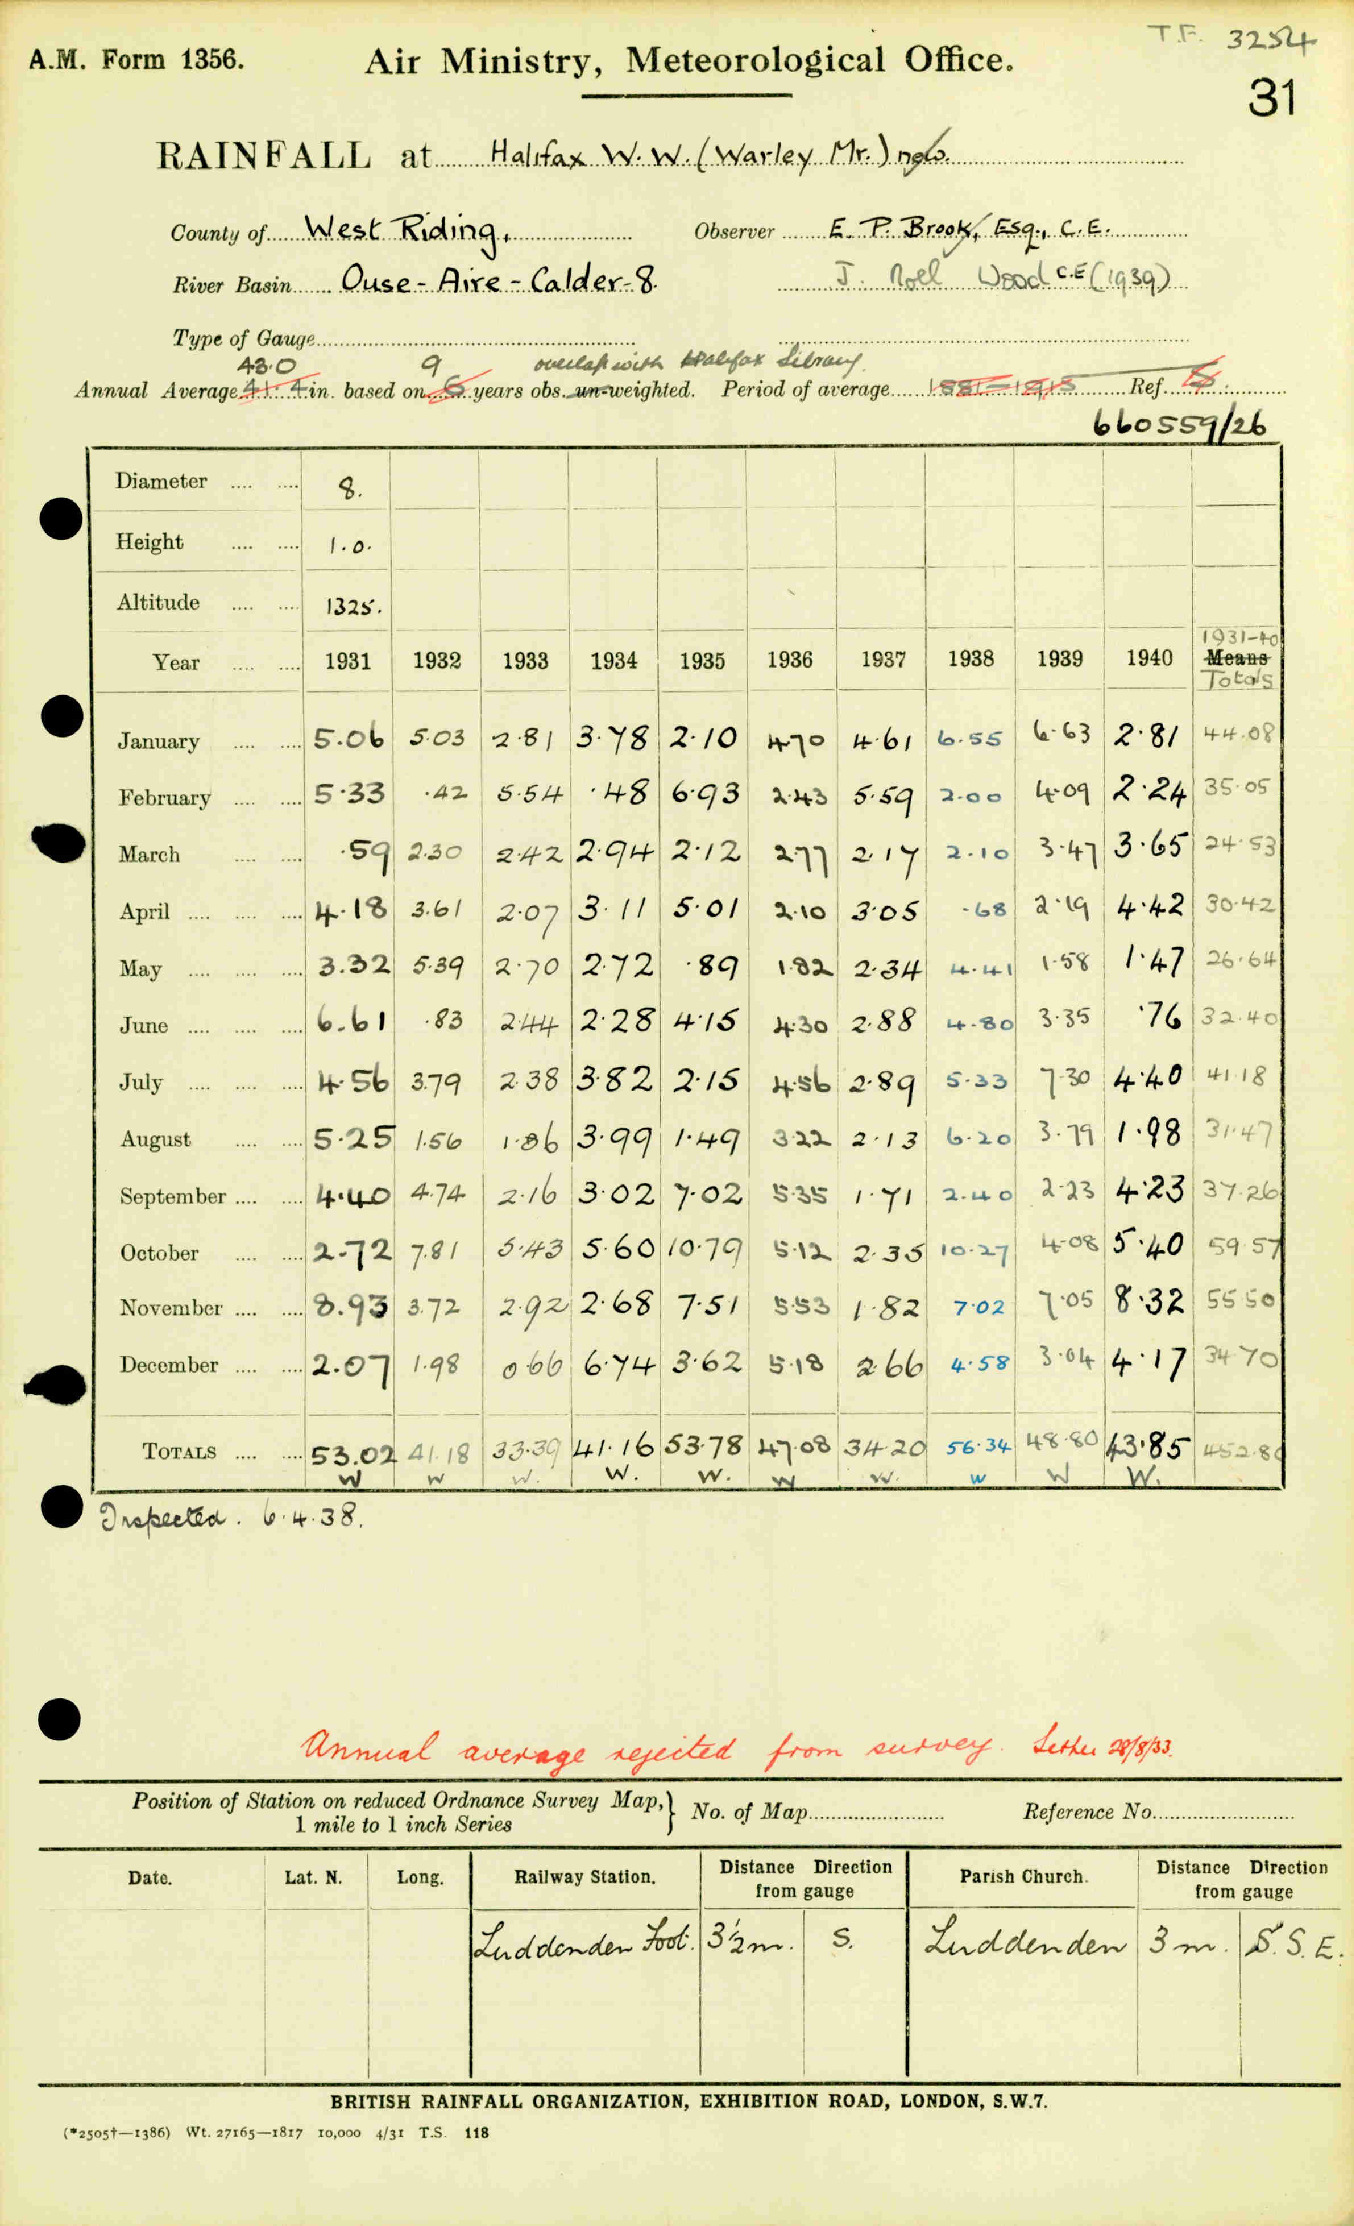 T.F. 3254
A.M. Form 1356. Air Ministry, Meteorological Office.
31
RAINFALL at Halifax W. W. (Warley Mr.) no6.
County of West Riding, Observer E. P. Brook, Esq., C.E.
River Basin Ouse - Aire - Calder - 8. J. Noel Wood C.E (1939)
Type of Gauge
43.0 9 overlap with Halifax Library
Annual Average 41.4 in. based on 6 years obs. un-weighted. Period of average 1881-1915 Ref.
660559/26
Diameter 8.
Height 1.0.
Altitude 1325.
1931-40
Year 1931 1932 1933 1934 1935 1936 1937 1938 1939 1940 Means
Totals
January 5.06 5.03 2.81 3.78 2.10 4.70 4.61 6.55 6.63 2.81 44.08
February 5.33 .42 5.54 .48 6.93 2.43 5.59 2.00 4.09 2.24 35.05
March .59 2.30 2.42 2.94 2.12 2.77 2.17 2.10 3.47 3.65 24.53
April 4.18 3.61 2.07 3.11 5.01 2.10 3.05 .68 2.19 4.42 30.42
May 3.32 5.39 2.70 2.72 .89 1.82 2.34 4.41 1.58 1.47 26.64
June 6.61 .83 2.44 2.28 4.15 4.30 2.88 4.80 3.35 .76 32.40
July 4.56 3.79 2.38 3.82 2.15 4.56 2.89 5.33 7.30 4.40 41.18
August 5.25 1.56 1.86 3.99 1.49 3.22 2.13 6.20 3.79 1.98 31.47
September 4.40 4.74 2.16 3.02 7.02 5.35 1.71 2.40 2.23 4.23 37.26
October 2.72 7.81 5.43 5.60 10.79 5.12 2.35 10.27 4.08 5.40 59.57
November 8.93 3.72 2.92 2.68 7.51 5.53 1.82 7.02 7.05 8.32 55.50
December 2.07 1.98 0.66 6.74 3.62 5.18 2.66 4.58 3.04 4.17 34.70
TOTALS 53.02 41.18 33.39 41.16 53.78 47.08 34.20 56.34 48.80 43.85 452.80
W W W. W. W. W W. W W W.
Inspected. 6.4.38.
Annual average rejected from survey. Letter 28/8/33.
Position of Station on reduced Ordnance Survey Map, No. of Map Reference No.
1 mile to 1 inch Series
Date. Lat. N. Long. Railway Station. Distance Direction from gauge Parish Church. Distance Direction from gauge
Luddenden Foot. 3½ m. S. Luddenden 3 m. S. S. E.
BRITISH RAINFALL ORGANIZATION, EXHIBITION ROAD, LONDON, S.W.7.
(*2505†—1386) Wt. 27165—1817 10,000 4/31 T.S. 118